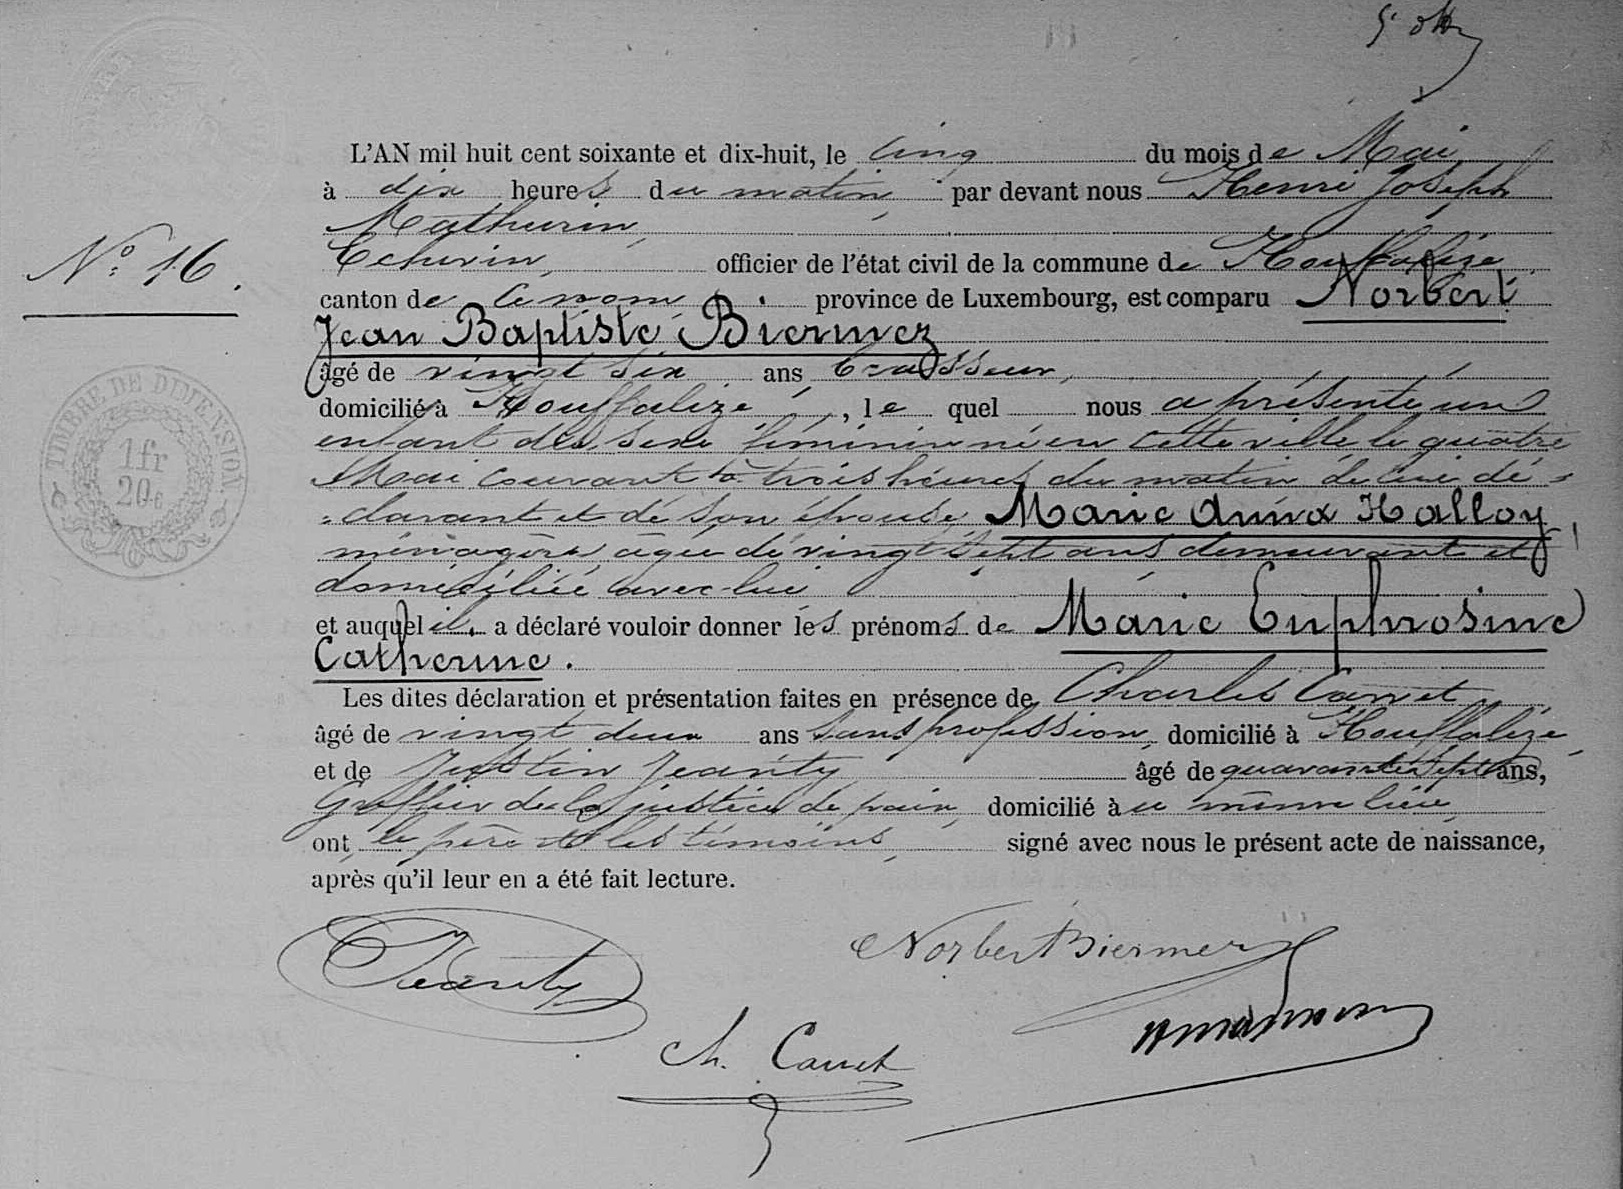 L'AN mil huit cent soixante et dix-huit, le cinq du mois de Mai,
à dix heures du matin, par devant nous Henri Joseph
Mathurin,
Echevin, officier de l'état civil de la commune de Houffalize
N° 16.
canton de ce nom, province de Luxembourg, est comparu Norbert
Jean Baptiste Biermez
âgé de vingt six ans brasseur,
domicilié à Houffalize, le quel nous a présenté un
enfant du sexe féminin né en cette ville le quatre
Mai courant à trois heures du matin de lui dé=
=clarant et de son épouse Marie Anna Halloy,
ménagère, agée de vingt sept ans demeurant et
domiciliée avec lui
et auquel il a déclaré vouloir donner les prénoms de Marie Euphrosine
Catherine.
TIMBRE DE DIMENSION
1 fr
20 c
Les dites déclaration et présentation faites en présence de Charles
âgé de vingt deux ans sans profession, domicilié à Houffalize,
et de Justin Jeanty âgé de quarante sept ans,
Greffier de la justice de paix, domicilié au même lieu,
ont, le père et les témoins, signé avec nous le présent acte de naissance,
après qu'il leur en a été fait lecture.
Jeanty
Norbert Biermez
Ch.